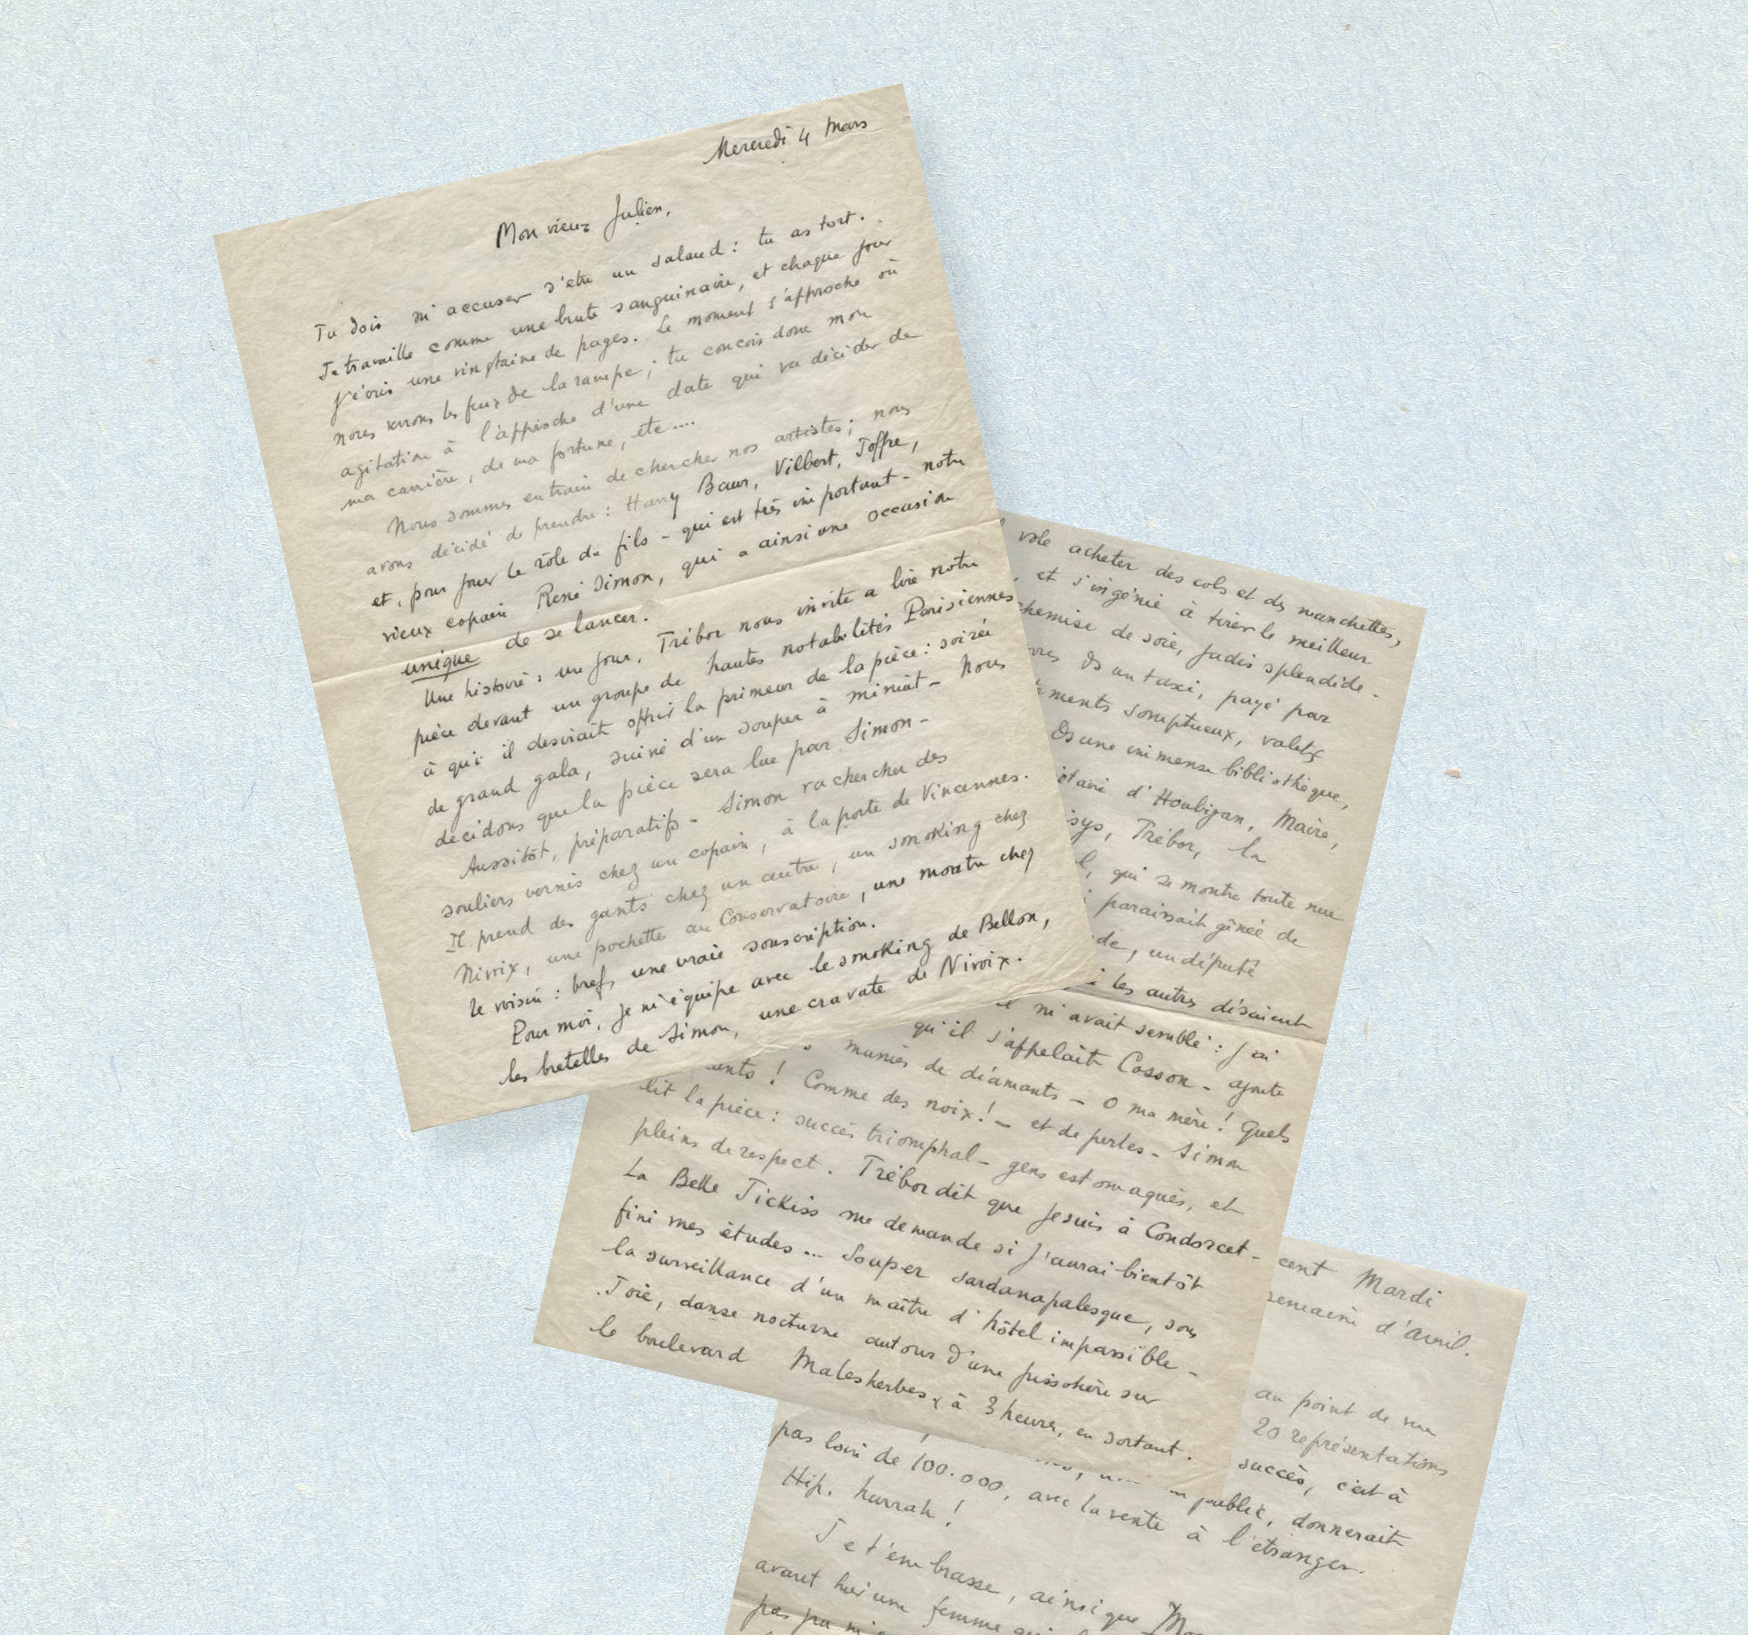 Mercredi 4 Mars
Mon vieux Julien,
Tu dois m'accuser d'être un salaud : tu as tort.
Je travaille comme une brute sanguinaire, et chaque jour
j'écris une vingtaine de pages. Le moment s'approche où
nous verrons les feux de la rampe ; tu conçois donc mon
agitation à l'approche d'une date qui va décider de
ma carrière, de ma fortune, etc....
Nous sommes en train de chercher nos artistes ; nous
avons décidé de prendre : Harry Baur, Vilbert, Joffre,
et, pour jouer le rôle du fils - qui est très important - notre
vieux copain René Simon, qui a ainsi une occasion
unique de se lancer.
Une histoire : un jour, Trébor nous invite à lire notre
pièce devant un groupe de hautes notabilités Parisiennes
à qui il desirait offrir la primeur de la pièce : soirée
de grand gala, suivi d'un souper à minuit - Nous
décidons que la pièce sera lue par Simon -
Aussitôt, préparatifs - Simon va chercher des
souliers vernis chez un copain, à la porte de Vincennes.
Il prend des gants chez un autre, un smoking chez
Nivoix, une pochette au Conservatoire, une montre chez
le voisin : bref, une vraie souscription.
Pour moi, je m'équipe avec le smoking de Bellon,
les bretelles de Simon, une cravate de Nivoix.
vole acheter des cols et des manchettes,
et s'ingénie à tirer le meilleur
chemise de soie, jadis splendide -
ds un taxi, payé par
somptueux, valets
Ds une immense bibliothèque,
d'Houbigan, Maire,
Trébor, la
qui se montre toute nue
paraissait gênée de
un député
les autres disaient
m'avait semblé : j'ai
qu'il s'appelait Cosson - ajoute
munies de diamants - O ma mère ! Quels
! Comme des noix ! - et de perles - Simon
lit la pièce : succès triomphal - gens estomaqués, et
pleins de respect. Trébor dit que je suis à Condorcet -
La Belle Jickiss me demande si j'aurai bientôt
fini mes études ... Souper sardanapalesque, sous
la surveillance d'un maître d'hôtel impassible -
Joie, danse nocturne autour d'une pissotière sur
le boulevard Malesherbes, à 3 heures, en sortant.
cent Mardi
semaine d'avril.
au point de vue
20 représentations
succès, c'est à
public, donnerait
pas loin de 100.000, avec la vente à l'étranger.
Hip, hurrah !
Je t'embrasse, ainsi que
avant hier une femme
pas pu